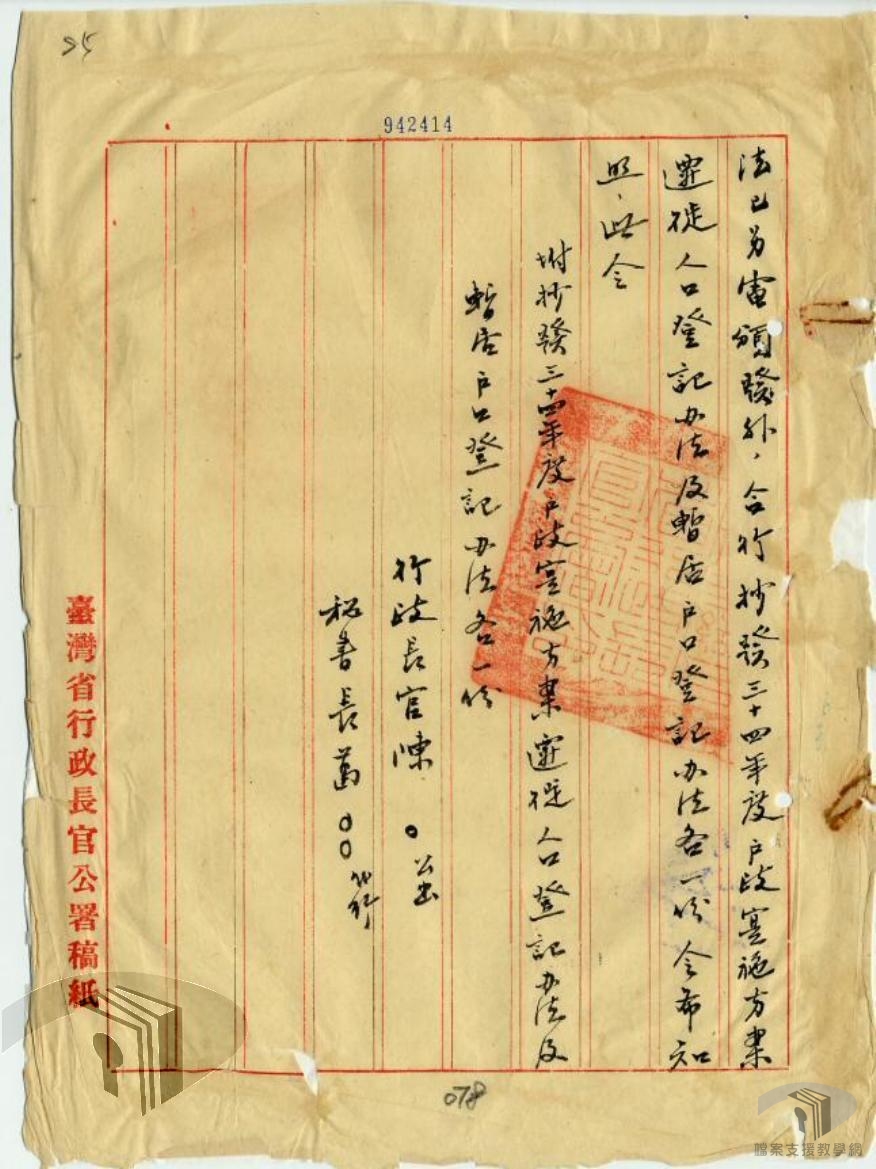 25
942414
法已另電頒發外,合行抄發三十四年度戶政实施方案
遷徙人口登記办法及暫居戶口登記办法各一份令希知
照,此令
坿抄發三十四年度戶政实施方案遷徙人口登記办法及
暫居戶口登記办法各一份
行政長官陳 〇 公出
秘書長葛〇〇代行
臺灣省行政長官公署稿紙
078
檔案支援教學網